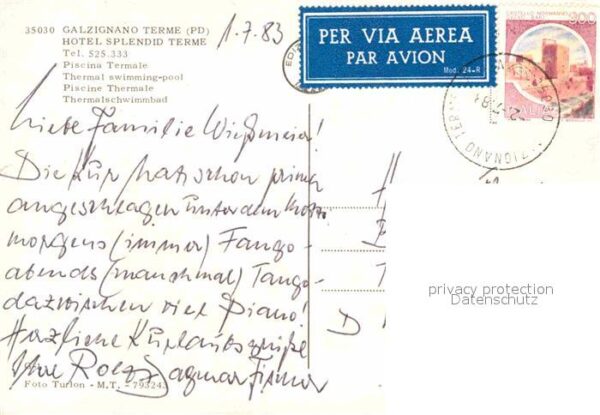 35030 GALZIGNANO TERME (PD)
HOTEL SPLENDID TERME
Tel. 525.333
Piscina Termale
Thermal swimming-pool
Piscine Thermale
Thermalschwimmbad
1.7.83
PER VIA AEREA
PAR AVION
Mod. 24-R
500
Liebe Familie Wießmeier!
Die Kur hat schon prima
angeschlagen unter dem Motto:
morgens (immer) Fango-
abends (manchmal) Tango-
dazwischen viel Piano!
Herzliche Kurlaubsgrüße
Ihre Dagmar Fismer
D
privacy protection
Datenschutz
Foto Turlon - M.T. - 793243